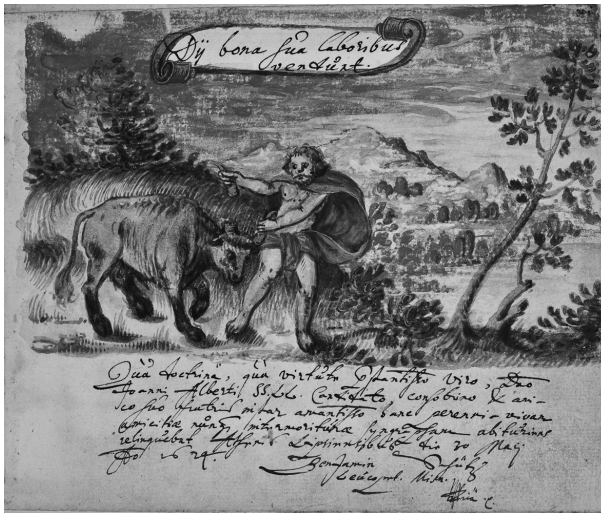 Dij bona sua laboribus
vendunt.
Quâ doctrinâ, quâ virtute praestantissimo viro, Dno
Joanni Alberti SS. Candidato, consobrino & ami-
co suo fratris instar amantissimo hanc perenni-
amicitiae nunq intermoriturae abituriens
relinquebat Lipsiensibus die 20 Maij
Ao 1624.
Benjamin Schütz
Leucopet. Misn.